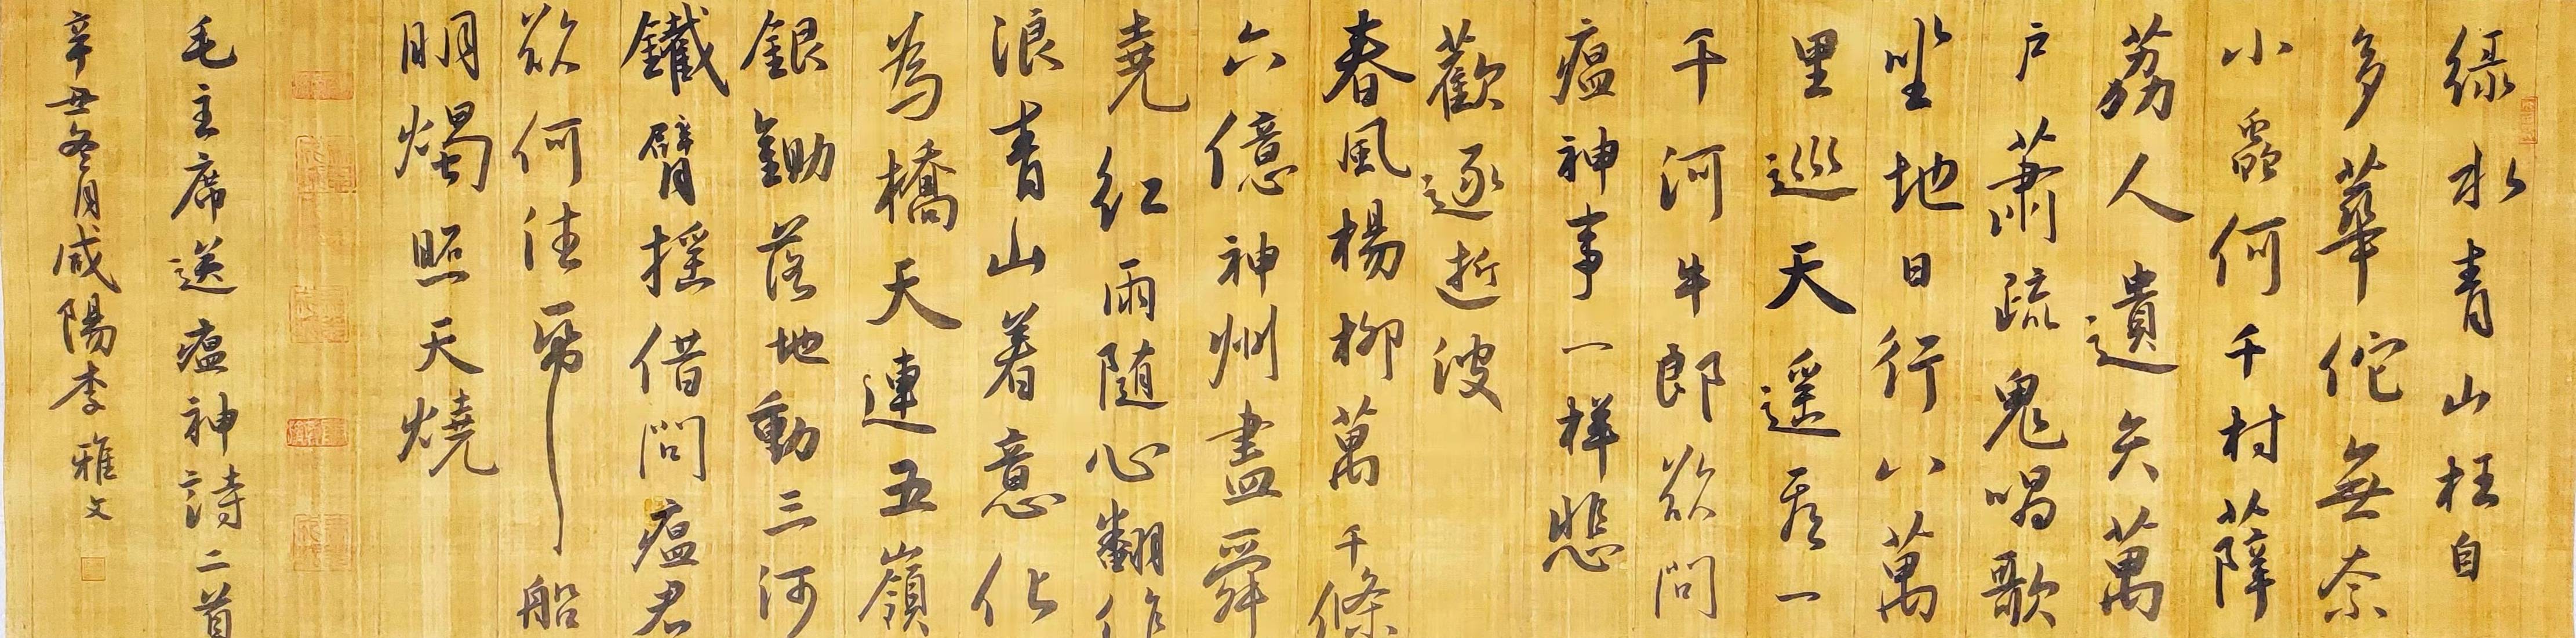 綠水青山枉自
多華佗無奈
小蟲何千村薜
荔人遺矢萬
戶蕭疏鬼唱歌
坐地日行八萬
里巡天遙看一
千河牛郎欲問
瘟神事一樣悲
歡逐逝波
春風楊柳萬千條
六億神州盡舜
堯紅雨隨心翻作
浪青山着意化
為橋天連五嶺
銀鋤落地動三河
鐵臂搖借問瘟君
欲何往帋船
明燭照天燒
毛主席送瘟神詩二首
辛丑冬月咸陽李雅文